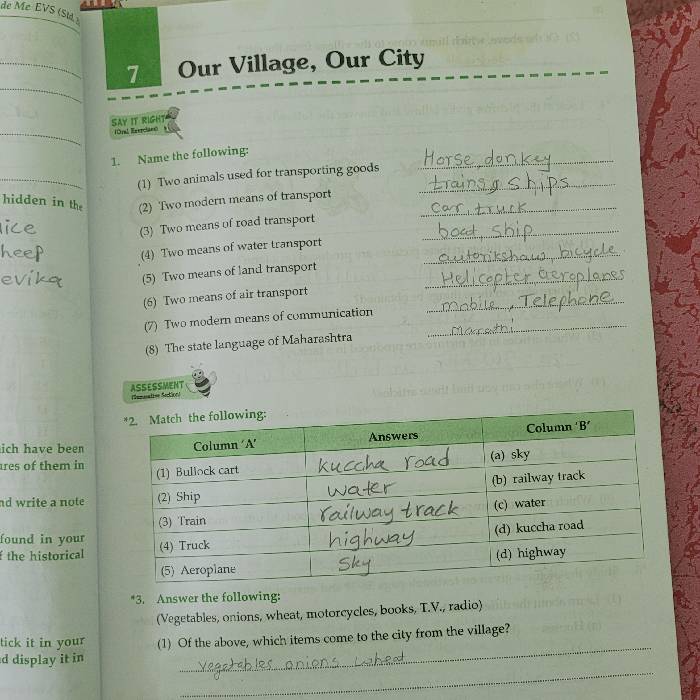 de Me EVS (Std.
7 Our Village, Our City
SAY IT RIGHT
(Oral Exercises)
1. Name the following:
(1) Two animals used for transporting goods Horse, donkey
(2) Two modern means of transport trains, ships
(3) Two means of road transport car, truck
(4) Two means of water transport boat, ship
(5) Two means of land transport autorikshaw, bicycle
(6) Two means of air transport Helicopter aeroplanes
(7) Two modern means of communication mobile, Telephone
(8) The state language of Maharashtra Marathi
ASSESSMENT
(Summative Section)
*2. Match the following:
Column 'A' Answers Column 'B'
(1) Bullock cart kuccha road (a) sky
(2) Ship water (b) railway track
(3) Train railway track (c) water
(4) Truck highway (d) kuccha road
(5) Aeroplane sky (d) highway
*3. Answer the following:
(Vegetables, onions, wheat, motorcycles, books, T.V., radio)
(1) Of the above, which items come to the city from the village?
Vegetables onions wheat
hidden in the
ice
heep
evika
ich have been
ures of them in
nd write a note
found in your
f the historical
tick it in your
d display it in